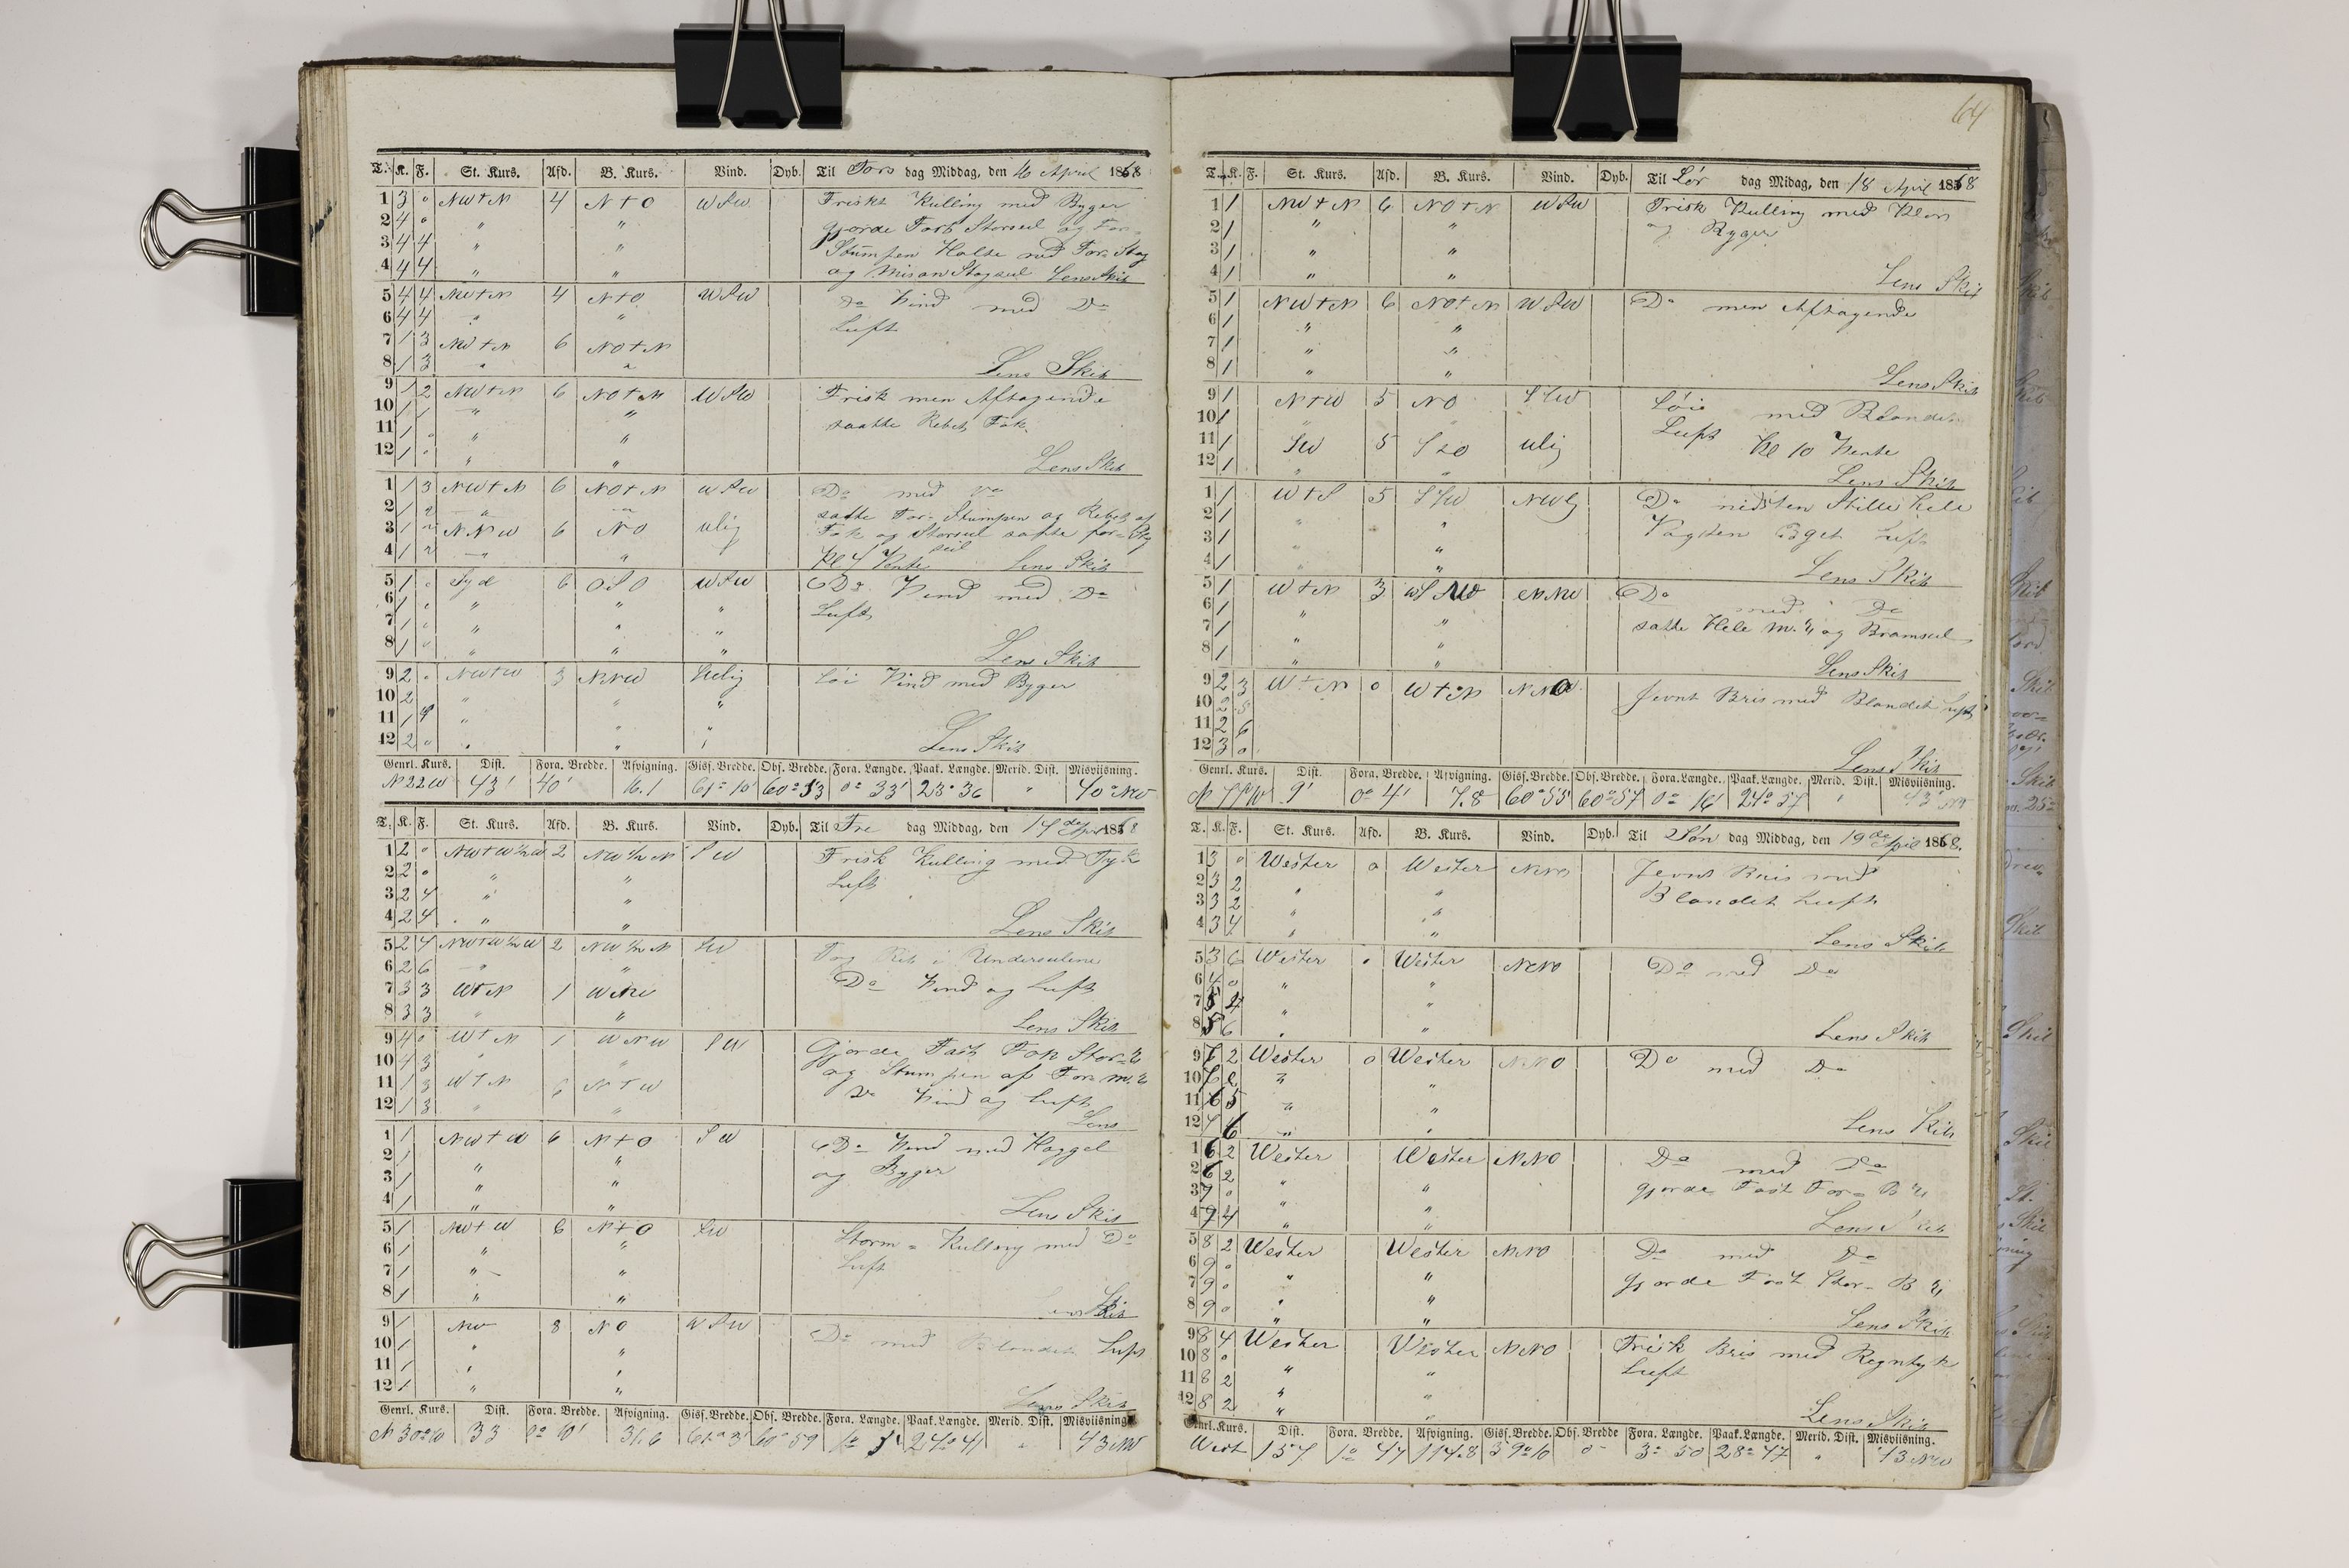 T. K. F. St. Kurs. Afd. B. Kurs. Vind. Dyb. Til Tors dag Middag, den 16 April 1868
1 3 0 NW+N 4 N+O WSW Friskt Kulling med Byger
2 4 0 " " gjorde Fast Storseil og For-
3 4 4 " " Stumpen Holse med For-Stag
4 4 4 " " og Misan Stagseil Lens Skib
5 4 4 NW+N 4 N+O WSW Do Vind med Do
6 4 4 " " Luft
7 1 3 NW+N 6 NO+N
8 1 3 " " Lens Skib
9 1 2 NW+N 6 NO+N WSW Frisk men Aftagende
10 1 1 " " saatte Rebet Fok.
11 1 0 " "
12 1 0 " " Lens Skib
1 1 3 NW+N 6 NO+N WSW Do med Do
2 1 2 " " satte For-Stumpen og Rebet af
3 1 2 NNW 6 NO ulig Fok og Storseil satte for-Stag
4 1 2 " " seil Kl 4 Vente Lens Skib
5 1 0 Syd 6 OSO WSW Do Vind med Do
6 1 0 " " " Luft
7 1 0 " " "
8 1 0 " " " Lens Skib
9 2 0 NW+W 3 NNW SWlig Løi Vind med Byger
10 2 " " "
11 1 4 " " "
12 2 0 " " " Lens Skib
Genrl. Kurs. Dist. Fora. Bredde. Afvigning. Giss. Bredde. Obs. Bredde. Fora. Længde. Paak. Længde. Merid. Dist. Misviisning.
N 22 W 43' 40' 16.1 61° 10' 60° 53 0° 33' 23° 36 " 40° NW
T. K. F. St. Kurs. Afd. B. Kurs. Vind. Dyb. Til Fre dag Middag, den 17de April 1868
1 2 0 NW+W½W 2 NW½N SW Frisk Kulling med Tyk
2 2 0 " " Luft
3 2 4 " "
4 2 4 " " Lens Skib
5 2 4 NW+W½W 2 NW½N SW Tog Reb i Underseilene
6 2 6 " " Do Vind og Luft
7 3 3 W+N 1 WNW
8 3 3 " " Lens Skib
9 4 0 W+N 1 WNW SW Gjorde Fast Fok Stor-
10 4 3 " " og Stumpen af For-
11 1 3 W+N 6 N+W Do Vind og Luft
12 1 3 " " Lens
1 1 NW+W 6 N+O SW Do Vind med Haggel
2 1 " " og Byger
3 1 " "
4 1 " " Lens Skib
5 1 NW+W 6 N+O SW Storm-Kulling med Do
6 1 " " Luft
7 1 " "
8 1 " " Lens Skib
9 1 NW 8 NO WSW Do med Blandet Luft
10 1 " "
11 1 " "
12 1 " " Lens Skib
Genrl. Kurs. Dist. Fora. Bredde. Afvigning. Giss. Bredde. Obs. Bredde. Fora. Længde. Paak. Længde. Merid. Dist. Misviisning.
N 30° W 33 0° 10' 31,6 61° 3' 60° 59 1° 5' 24° 41 " 43 NW
64
T. K. F. St. Kurs. Afd. B. Kurs. Vind. Dyb. Til Lør dag Midag, den 18 April 1868
1 1 NW+N 6 NO+N WSW Frisk Kulling med Klar
2 1 " " og Byger
3 1 " "
4 1 " " Lens Skib
5 1 NW+N 6 NO+N WSW Do men Aftagende
6 1 " "
7 1 " "
8 1 " " Lens Skib
9 1 N+W 5 NO SSW Løie med Blandet
10 1 " " Luft
11 1 SW 5 ulig Kl 10 Vente
12 1 " " Lens Skib
1 1 W+S 5 SSW NWlig Do nedsten Stille hele
2 1 " " Vagten Luft
3 1 " "
4 1 " " Lens Skib
5 1 W+N 3 NNW Do med Do
6 1 " "
7 1 " " satte Hele og Bramseil
8 1 " " Lens Skib
9 2 3 W+N 0 W+N NNO Jevnt Bris med Blandet Luft
10 2 5
11 2 6
12 3 0 Lens Skib
Genrl. Kurs. Dist. Fora. Bredde. Afvigning. Giss. Bredde. Obs. Bredde. Fora. Længde. Paak. Længde. Merid. Dist. Misviisning.
N 77 W 9' 0° 4' 7.8 60° 55 60° 57 0° 16' 24° 57 " 43 NW
T. K. F. St. Kurs. Afd. B. Kurs. Vind. Dyb. Til Søn dag Middag, den 19de April 1868.
1 3 0 Wester 0 Wester NNO Jevnt Bris med
2 3 2 " " Blandet Luft
3 3 2 " "
4 3 4 " " Lens Skib
5 3 6 Wester 0 Wester NNO Do med Do
6 4 0 " "
7 5 4 " "
8 5 6 " " Lens Skib
9 6 2 Wester 0 Wester NNO Do med Do
10 6 " "
11 6 5 " "
12 " " Lens Skib
1 6 2 Wester Wester NNO Do med Do
2 6 2 " " gjorde Fast For-
3 7 0 " "
4 7 4 " " Lens Skib
5 8 2 Wester Wester NNO Do med Do
6 9 0 " " Gjorde Fast Stor-
7 9 0 " "
8 9 0 " " Lens Skib
9 8 4 Wester Wester NNO Frisk Bris med Regntyk
10 8 0 " " Luft
11 8 2 " "
12 8 2 " " Lens Skib
Genrl. Kurs. Dist. Fora. Bredde. Afvigning. Giss. Bredde. Obs. Bredde Fora. Længde. Paak. Længde. Merid. Dist. Misviisning.
West 157 1° 47 114.8 59° 10 0 3° 50 28° 47 " 43 NW